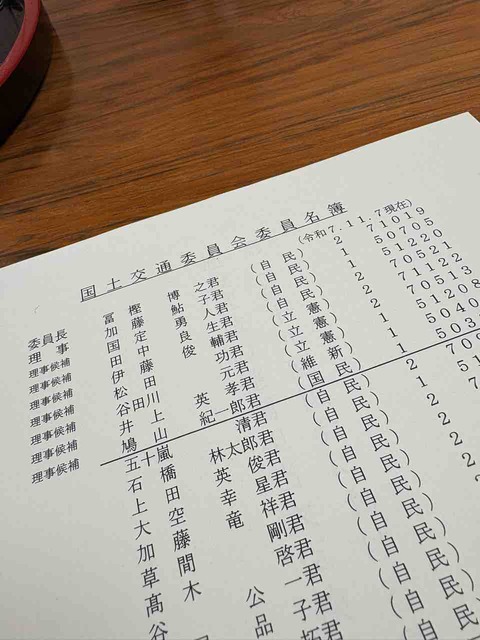 国土交通委員会委員名簿
(令和7.11.7現在)
委員長 冨樫博之君 (自民) 2 71019
理事 加藤鮎子君 (自民) 1 50705
理事候補 国定勇人君 (自民) 1 51220
理事候補 田中良生君 (自民) 2 70521
理事候補 伊藤俊輔君 (立憲) 2 71122
理事候補 松田功君 (立憲) 2 70513
理事候補 谷田川元君 (立憲) 1 51208
理事候補 井上英孝君 (維新) 1 5040
理事候補 鳩山紀一郎君 (国民) 1 503
五十嵐清君 (自民) 2 70
石橋林太郎君 (自民) 1
上田英俊君 (自民) 2
大空幸星君 (自民)
加藤竜祥君 (自民)
草間剛君 (自民)
髙木啓君 (自民)
谷公一君 (自民)